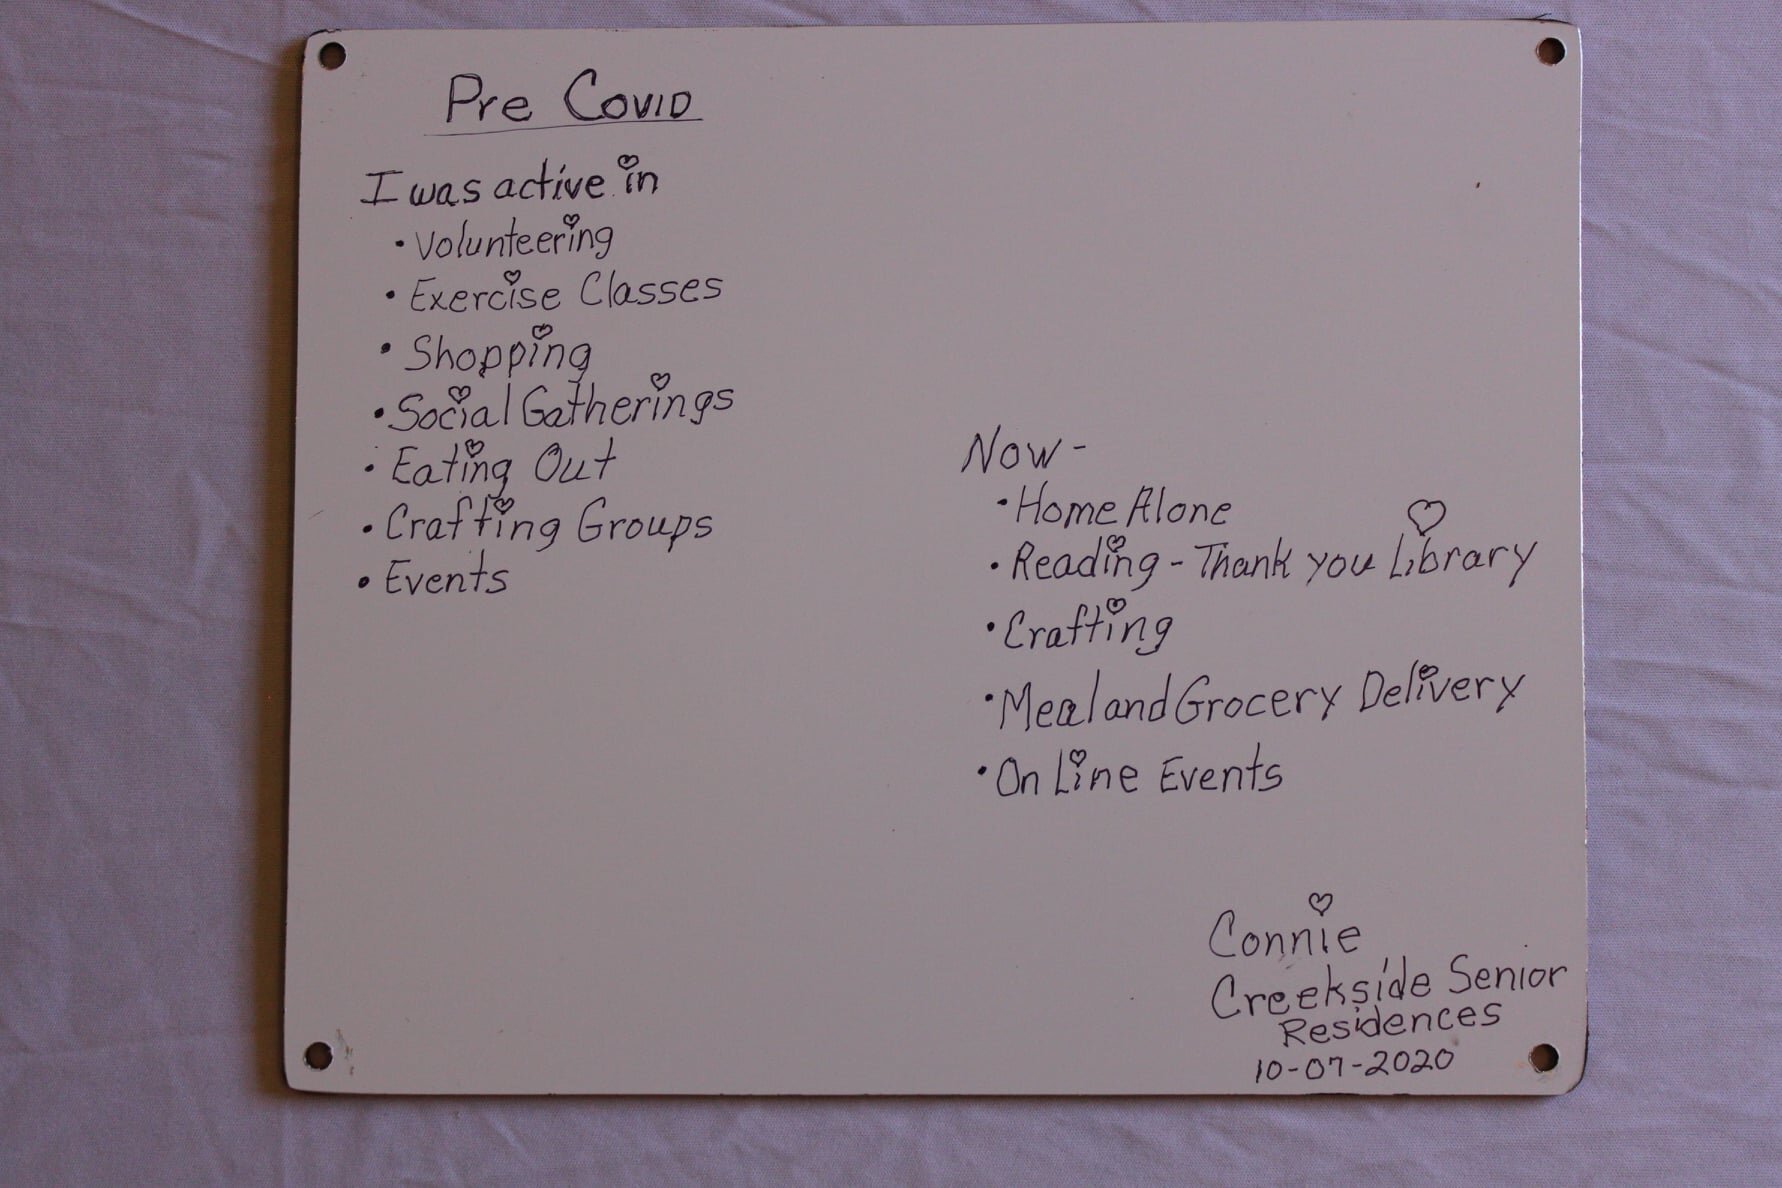 Pre Covid
I was active in
• Volunteering
• Exercise Classes
• Shopping
• Social Gatherings
• Eating Out
• Crafting Groups
• Events
Now -
• Home Alone
• Reading - Thank you Library
• Crafting
• Meal and Grocery Delivery
• On Line Events
Connie
Creekside Senior
Residences
10-07-2020